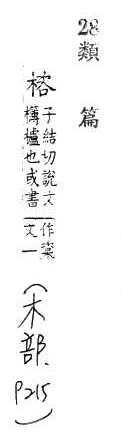 28類篇
子結切說文
欂櫨也或書
作楶
文一
(木部.P215)